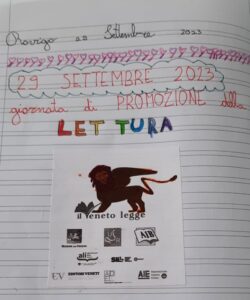 Rovigo 29 Settembre 2023
29 SETTEMBRE 2023
giornata di PROMOZIONE della
LETTURA
il veneto legge
AIB
ali
EDITORI VENETI
AIE